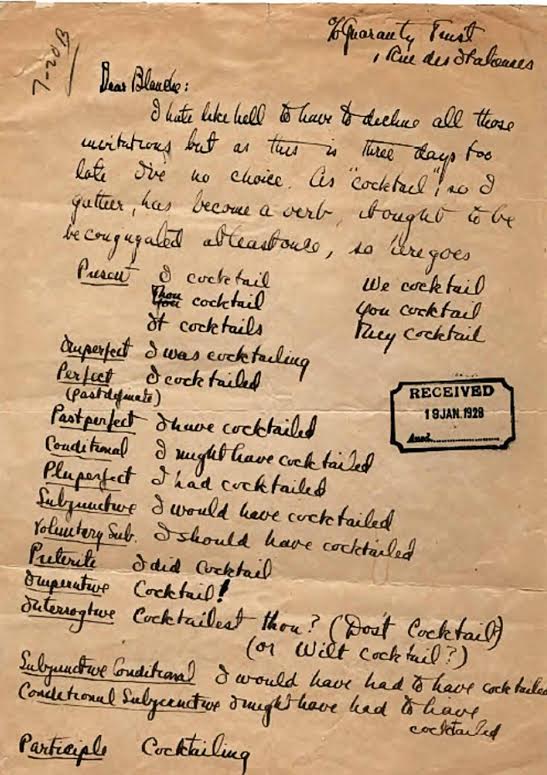 7-20B
℅ Guaranty Trust
1 Rue des Italiennes
Dear Blanche:
I hate like hell to have to decline all those
invitations but as this is three days too
late I've no choice. As "cocktail", so I
gather, has become a verb, it ought to be
be congugated at least once, so here goes
Present I cocktail We cocktail
Thou cocktail You cocktail
It cocktails They cocktail
Imperfect I was cocktailing
Perfect I cocktailed
(past definate)
Past perfect I have cocktailed
Conditional I might have cocktailed
Pluperfect I had cocktailed
Subjunctive I would have cocktailed
Voluntary Sub. I should have cocktailed
Preterite I did cocktail
Imperative Cocktail!
Interrogtive Cocktailest thou? (Dos't Cocktail?)
(or Wilt cocktail?)
Subjunctive Conditional I would have had to have cocktailed
Conditional Subjunctive I might have had to have
cocktailed
Participle Cocktailing
RECEIVED
19 JAN. 1928
Ansd.